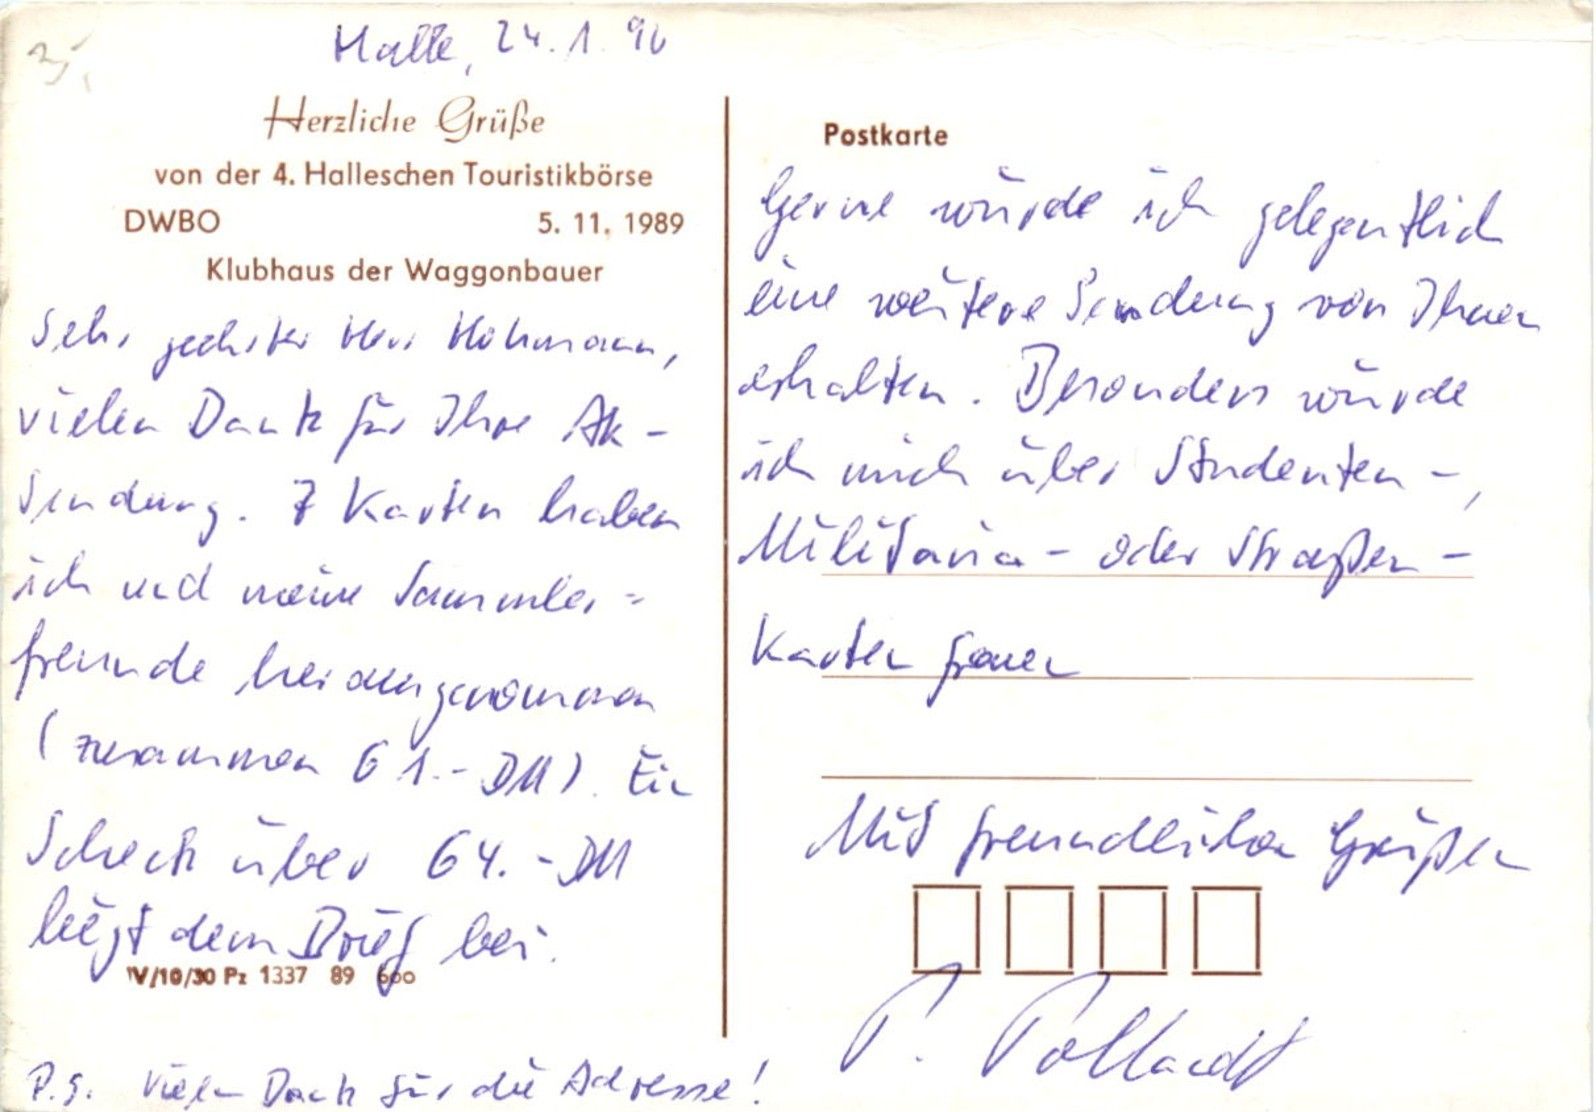 Halle, 24.1.90
Herzliche Grüße
von der 4. Halleschen Touristikbörse
DWBO 5. 11. 1989
Klubhaus der Waggonbauer
Sehr geehrter Herr Hohmann,
vielen Dank für Ihre AK-
Sendung. 7 Karten haben
ich und meine Sammler-
freunde herausgenommen
(zusammen 61.- DM). Ein
Scheck über 64.- DM
liegt dem Brief bei.
IV/10/30 Pz 1337 89 600
P.S. Vielen Dank für die Adresse!
Postkarte
Gerne würde ich gelegentlich
eine weitere Sendung von Ihnen
erhalten. Besonders würde
ich mich über Studenten-,
Militaria- oder Straßen-
Karten freuen
Mit freundlichen Grüßen